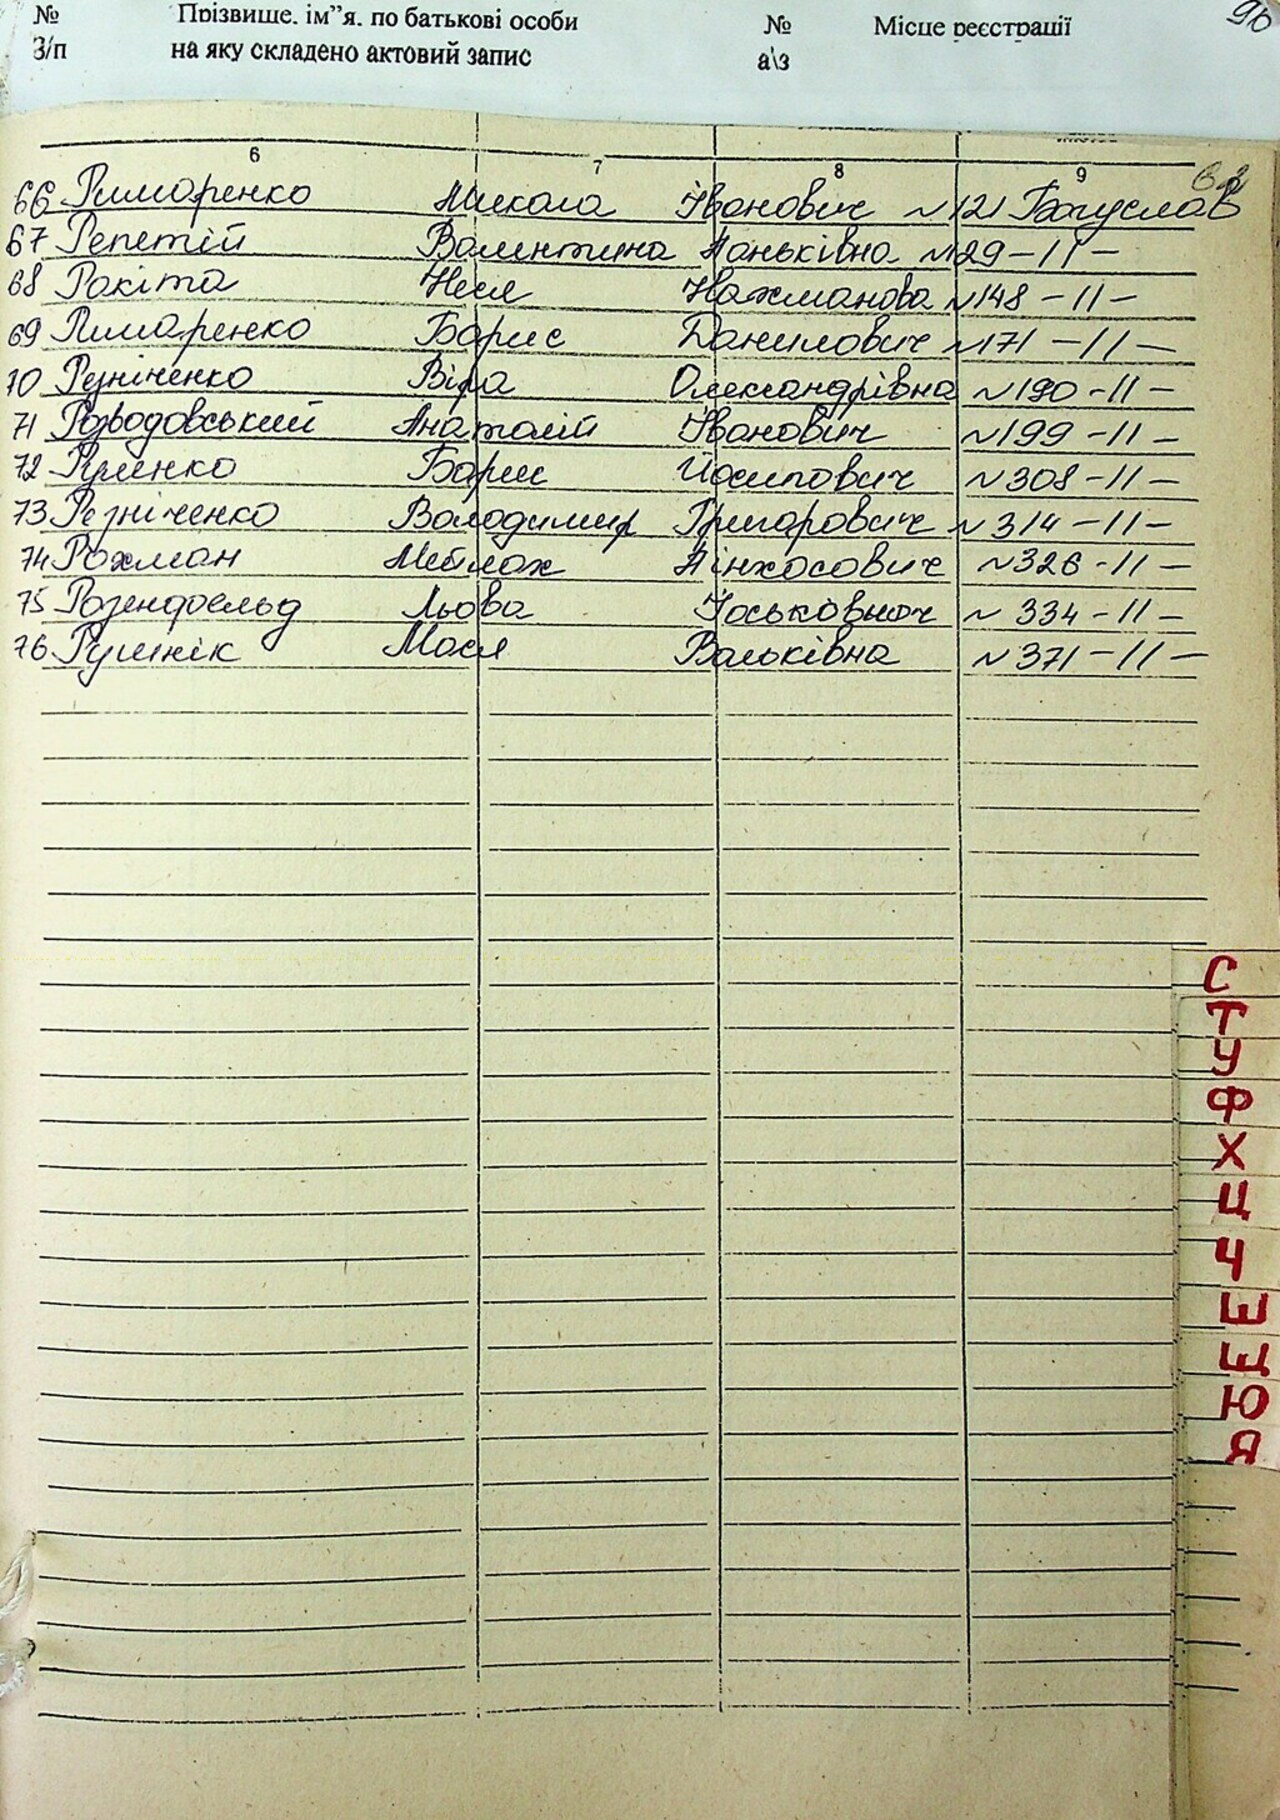 № Прізвище, ім”я, по батькові особи № Місце реєстрації 96
З/п на яку складено актовий запис а\з
6 7 8 9
66 Римаренко Микола Іванович №121 Богуслав
67 Репетій Валентина Паньківна №129 -11-
68 Ракіта Неся Нахманова №148 -11-
69 Римаренко Борис Данилович №171 -11-
70 Резніченко Віра Олександрівна №190 -11-
71 Розводовський Анатолій Іванович №199 -11-
72 Руденко Борис Йосипович №308 -11-
73 Резніченко Володимир Григорович №314 -11-
74 Рохман Мейлах Пінхосович №326 -11-
75 Розенфельд Льова Йоськович № 334 -11-
76 Рутнік Мося Вольківна №371 -11-
С
Т
У
Ф
Х
Ц
Ч
Ш
Щ
Ю
Я